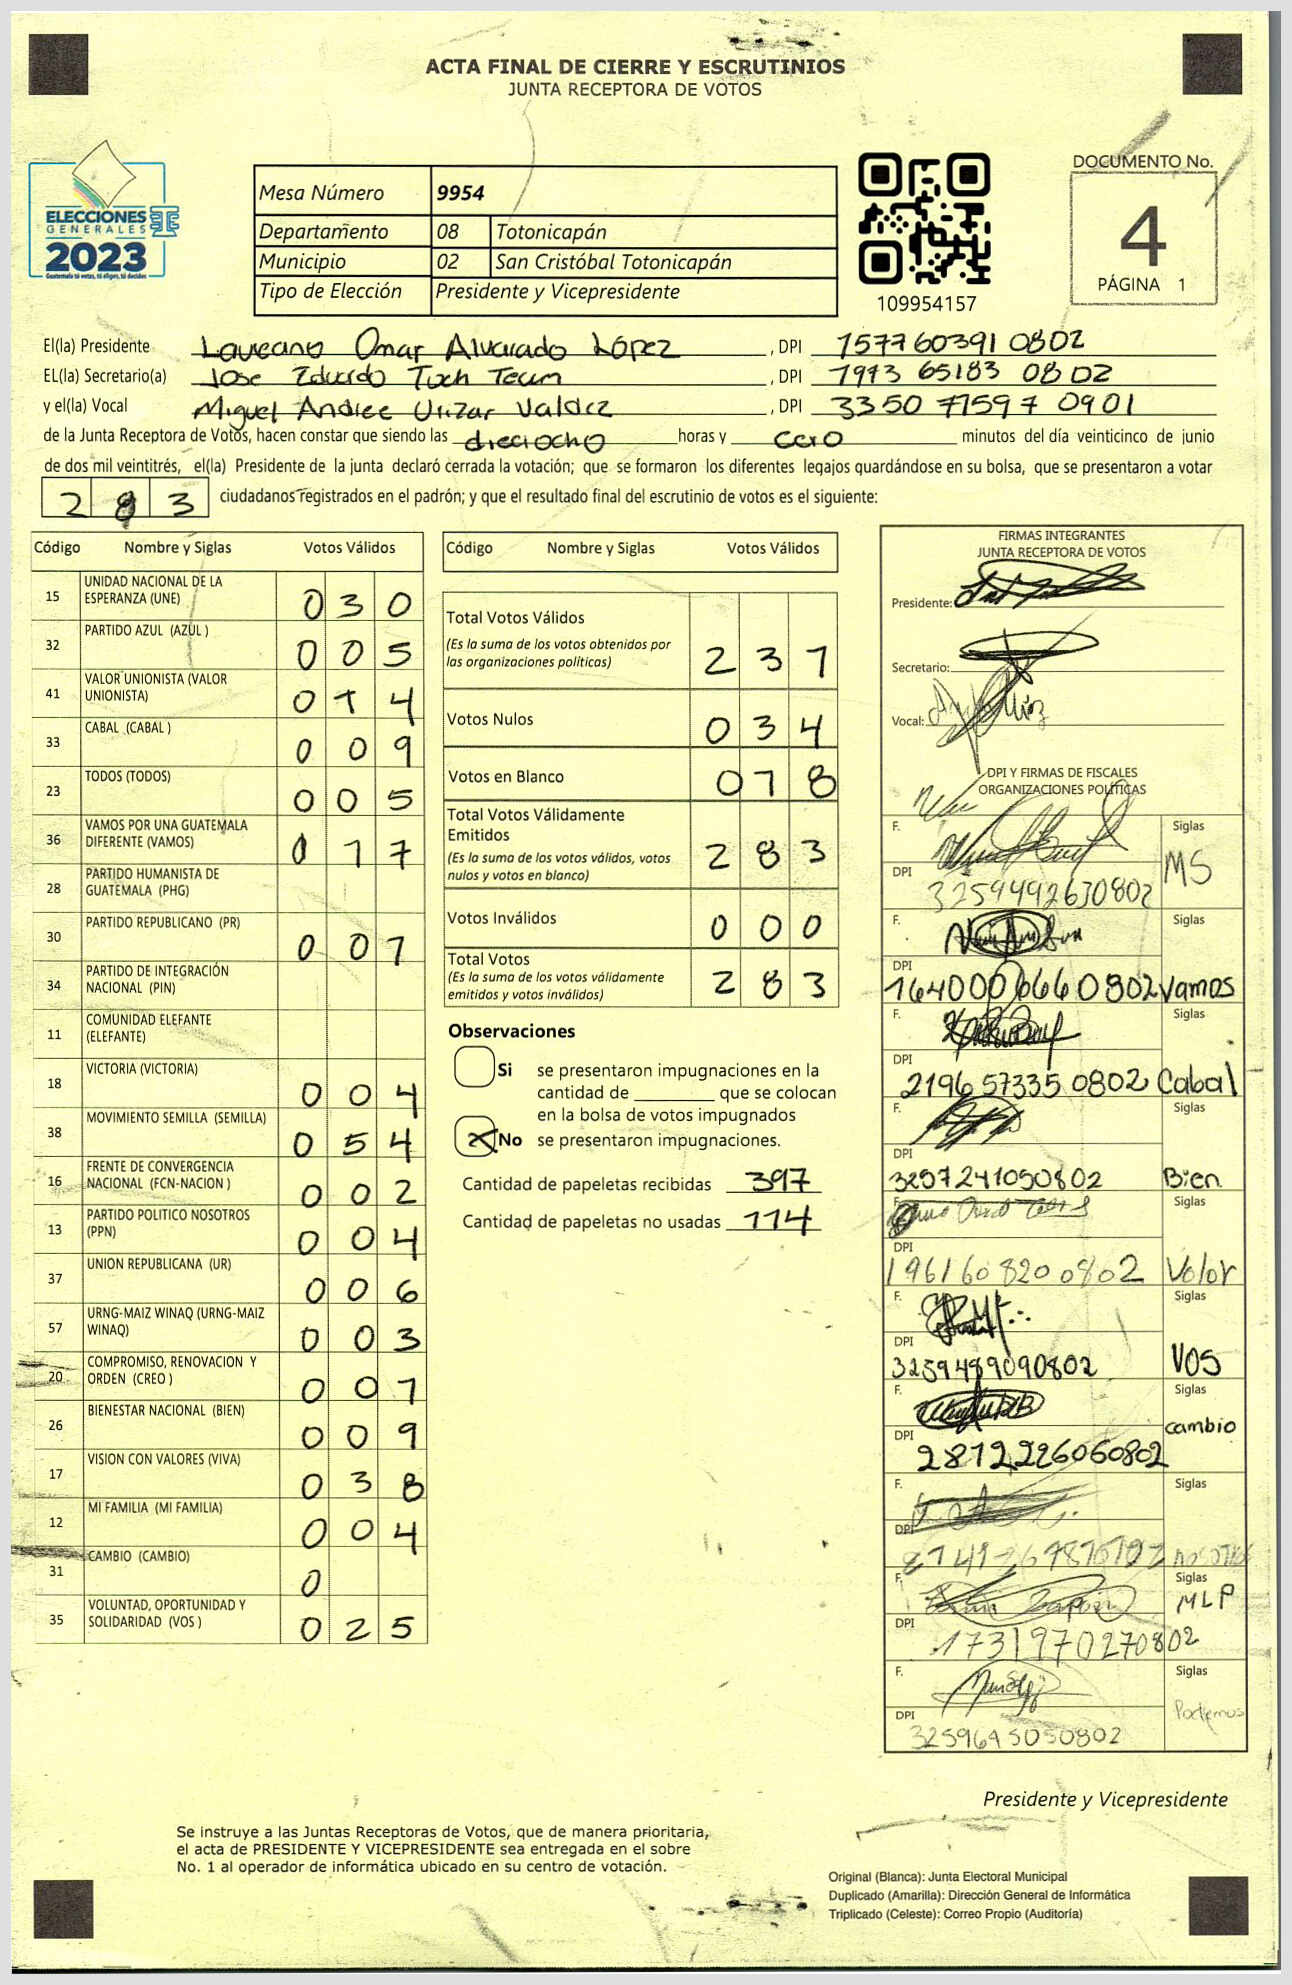 ACTA FINAL DE CIERRE Y ESCRUTINIOS
JUNTA RECEPTORA DE VOTOS
ELECCIONES
GENERALES
2023
Guatemala tú votas, tú eliges, tú decides
Mesa Número 9954
Departamento 08 Totonicapán
Municipio 02 San Cristóbal Totonicapán
Tipo de Elección Presidente y Vicepresidente
109954157
DOCUMENTO No.
4
PÁGINA 1
El(la) Presidente Laureano Omar Alvarado López, DPI 1577 60391 0802
EL(la) Secretario(a) Jose Eduardo Tuch, DPI 1973 65183 0802
y el(la) Vocal Miguel Andree Urizar Valdez, DPI 3350 71597 0901
de la Junta Receptora de Votos, hacen constar que siendo las dieciocho horas y cero minutos del día veinticinco de junio
de dos mil veintitrés, el(la) Presidente de la junta declaró cerrada la votación; que se formaron los diferentes legajos guardándose en su bolsa, que se presentaron a votar
283 ciudadanos registrados en el padrón; y que el resultado final del escrutinio de votos es el siguiente:
Código Nombre y Siglas Votos Válidos
15 UNIDAD NACIONAL DE LA ESPERANZA (UNE) 030
32 PARTIDO AZUL (AZUL ) 005
41 VALOR UNIONISTA (VALOR UNIONISTA) 014
33 CABAL (CABAL ) 009
23 TODOS (TODOS) 005
36 VAMOS POR UNA GUATEMALA DIFERENTE (VAMOS) 017
28 PARTIDO HUMANISTA DE GUATEMALA (PHG)
30 PARTIDO REPUBLICANO (PR) 001
34 PARTIDO DE INTEGRACIÓN NACIONAL (PIN)
11 COMUNIDAD ELEFANTE (ELEFANTE)
18 VICTORIA (VICTORIA) 004
38 MOVIMIENTO SEMILLA (SEMILLA) 054
16 FRENTE DE CONVERGENCIA NACIONAL (FCN-NACION ) 002
13 PARTIDO POLITICO NOSOTROS (PPN) 004
37 UNION REPUBLICANA (UR) 006
57 URNG-MAIZ WINAQ (URNG-MAIZ WINAQ) 003
20 COMPROMISO, RENOVACION Y ORDEN (CREO ) 001
26 BIENESTAR NACIONAL (BIEN) 009
17 VISION CON VALORES (VIVA) 038
12 MI FAMILIA (MI FAMILIA) 004
31 CAMBIO (CAMBIO) 0
35 VOLUNTAD, OPORTUNIDAD Y SOLIDARIDAD (VOS ) 025
Código Nombre y Siglas Votos Válidos
Total Votos Válidos 231
(Es la suma de los votos obtenidos por las organizaciones políticas)
Votos Nulos 034
Votos en Blanco 018
Total Votos Válidamente Emitidos 283
(Es la suma de los votos válidos, votos nulos y votos en blanco)
Votos Inválidos 000
Total Votos 283
(Es la suma de los votos válidamente emitidos y votos inválidos)
Observaciones
Si se presentaron impugnaciones en la
cantidad de ________ que se colocan
en la bolsa de votos impugnados
X No se presentaron impugnaciones.
Cantidad de papeletas recibidas 397
Cantidad de papeletas no usadas 114
FIRMAS INTEGRANTES
JUNTA RECEPTORA DE VOTOS
Presidente:
Secretario:
Vocal:
DPI Y FIRMAS DE FISCALES
ORGANIZACIONES POLÍTICAS
F. Siglas MS
DPI 3259492630802
F. Siglas Vamos
DPI 1640006660802
F. Siglas Cabal
DPI 2196 57335 0802
F. Siglas Bien
DPI 3257241050802
F. Siglas Valor
DPI 1961608200802
F. Siglas VOS
DPI 3259489090802
F. Siglas cambio
DPI 2812226060802
F. Siglas nosotros
DPI
F. Siglas MLP
DPI 1731970270802
F. Siglas Podemos
DPI 3259645050802
Presidente y Vicepresidente
Se instruye a las Juntas Receptoras de Votos, que de manera prioritaria,
el acta de PRESIDENTE Y VICEPRESIDENTE sea entregada en el sobre
No. 1 al operador de informática ubicado en su centro de votación.
Original (Blanca): Junta Electoral Municipal
Duplicado (Amarilla): Dirección General de Informática
Triplicado (Celeste): Correo Propio (Auditoría)